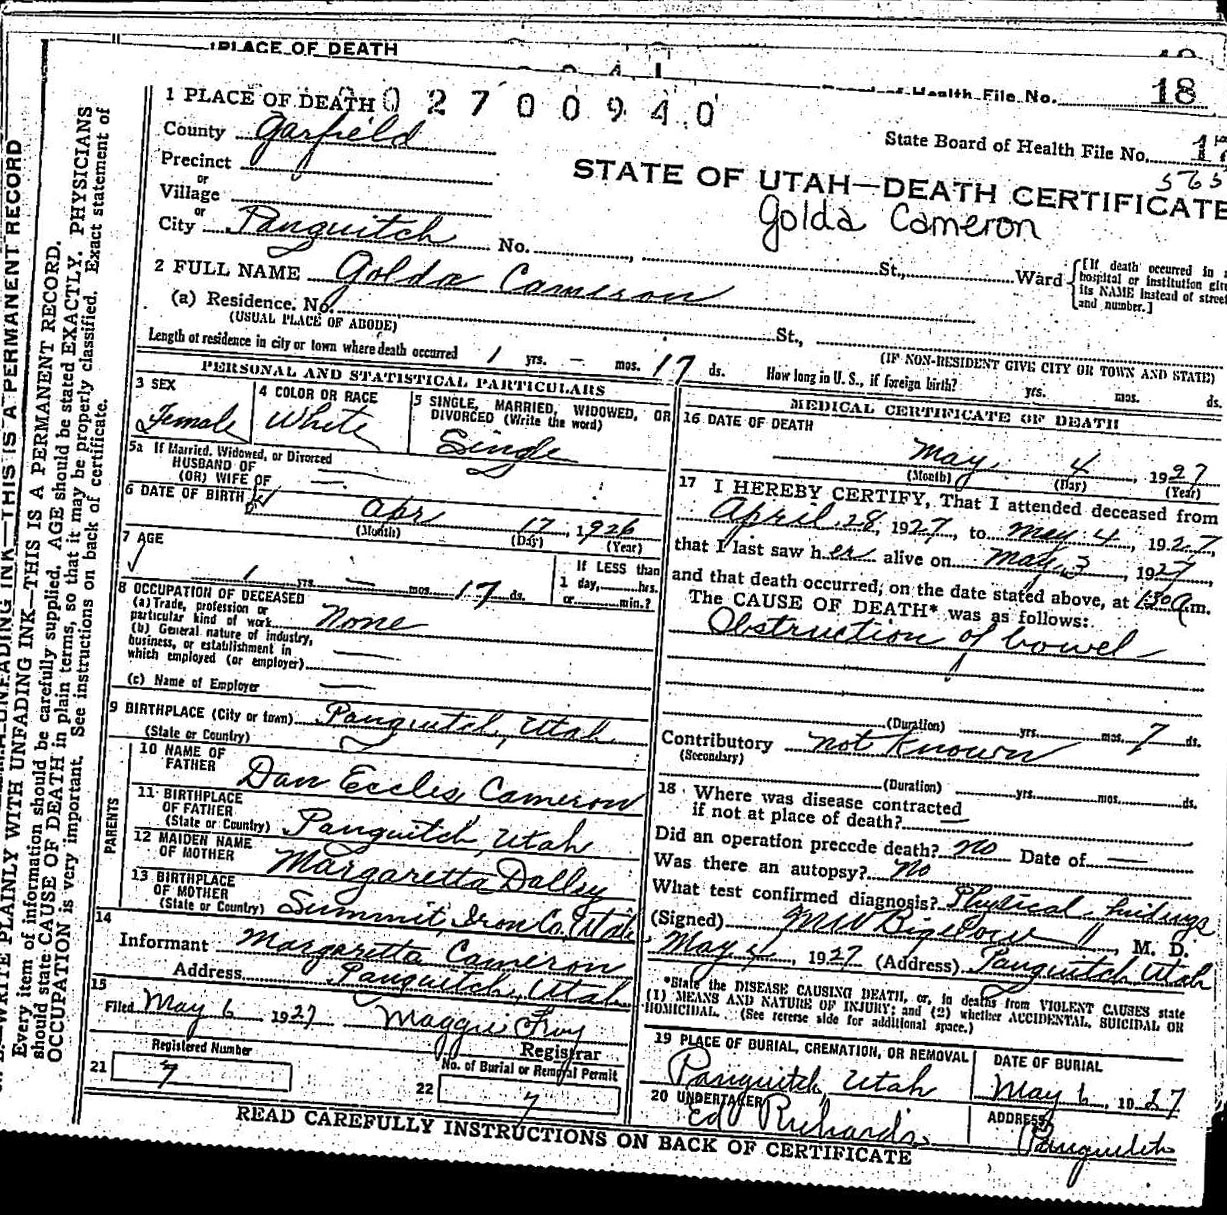 PLACE OF DEATH
18
Board of Health File No.
0 2 7 0 0 9 4 0
1 PLACE OF DEATH
State Board of Health File No.
County Garfield
Precinct
or
Village
or
City Panguitch No. , St., Ward
STATE OF UTAH—DEATH CERTIFICATE
Golda Cameron
[If death occurred in a
hospital or institution give
its NAME instead of street
and number.]
2 FULL NAME Golda Cameron
(a) Residence. No. St.,
(USUAL PLACE OF ABODE)
(IF NON-RESIDENT GIVE CITY OR TOWN AND STATE)
Length of residence in city or town where death occurred 1 yrs. – mos. 17 ds. How long in U. S., if foreign birth? yrs. mos. ds.
PERSONAL AND STATISTICAL PARTICULARS
3 SEX
Female
4 COLOR OR RACE
White
5 SINGLE, MARRIED, WIDOWED, OR
DIVORCED (Write the word)
Single
5a If Married, Widowed, or Divorced
HUSBAND OF
(OR) WIFE OF
6 DATE OF BIRTH Apr 17, 1926
(Month) (Day) (Year)
7 AGE
1 yrs. — mos. 17 ds.
If LESS than
1 day, hrs.
or min.?
8 OCCUPATION OF DECEASED
(a) Trade, profession or
particular kind of work None
(b) General nature of industry,
business, or establishment in
which employed (or employer)
(c) Name of Employer
9 BIRTHPLACE (City or town) Panguitch, Utah
(State or Country)
PARENTS
10 NAME OF
FATHER Dan Eccles Cameron
11 BIRTHPLACE
OF FATHER
(State or Country) Panguitch, Utah
12 MAIDEN NAME
OF MOTHER Margaretta Dalley
13 BIRTHPLACE
OF MOTHER
(State or Country) Summit, Iron Co. Utah
14
Informant Margaretta Cameron
Address Panguitch, Utah
15
Filed May 6 1927 Maggie Froy
Registrar
Registered Number
21 7
No. of Burial or Removal Permit
22 7
MEDICAL CERTIFICATE OF DEATH
16 DATE OF DEATH
May 4, 1927
(Month) (Day) (Year)
17 I HEREBY CERTIFY, That I attended deceased from
April 28, 1927, to May 4, 1927,
that I last saw her alive on May 3, 1927,
and that death occurred, on the date stated above, at 130 a.m.
The CAUSE OF DEATH* was as follows:
Obstruction of bowel
(Duration) yrs. mos. 7 ds.
Contributory not known
(Secondary)
(Duration) yrs. mos. ds.
18 Where was disease contracted
if not at place of death? —
Did an operation precede death? No Date of —
Was there an autopsy? No
What test confirmed diagnosis? Physical findings
(Signed) M W Bigelow, M. D.
May 4, 1927 (Address) Panguitch Utah
*State the DISEASE CAUSING DEATH, or, in deaths from VIOLENT CAUSES state
(1) MEANS AND NATURE OF INJURY; and (2) whether ACCIDENTAL, SUICIDAL OR
HOMICIDAL. (See reverse side for additional space.)
19 PLACE OF BURIAL, CREMATION, OR REMOVAL
Panguitch, Utah
DATE OF BURIAL
May 6, 1927
20 UNDERTAKER
Ed Richards
ADDRESS
Panguitch
READ CAREFULLY INSTRUCTIONS ON BACK OF CERTIFICATE
WRITE PLAINLY WITH UNFADING INK—THIS IS A PERMANENT RECORD
Every item of information should be carefully supplied. AGE should be stated EXACTLY. PHYSICIANS
should state CAUSE OF DEATH in plain terms, so that it may be properly classified. Exact statement of
OCCUPATION is very important. See instructions on back of certificate.